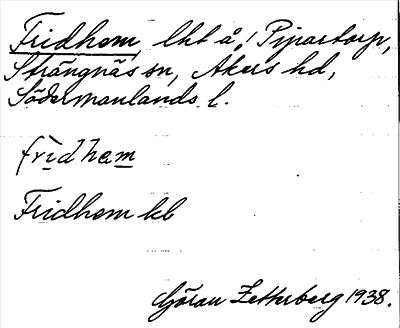 Fridhem lht å Pipartorp,
Strängnäs sn, Åkers hd,
Södermanlands l.
fridhem
Fridhem kb
Göran Zetterberg 1938.